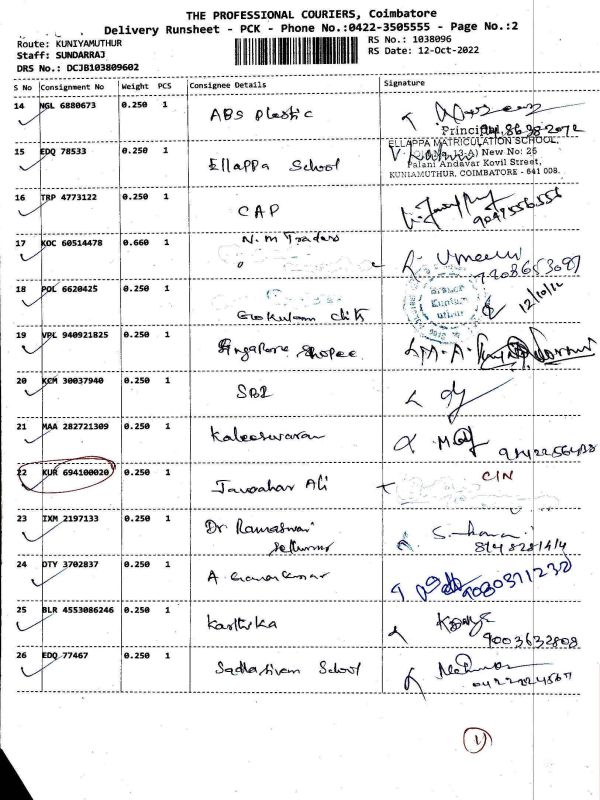 THE PROFESSIONAL COURIERS, Coimbatore
Delivery Runsheet - PCK - Phone No:0422-3505555 - Page No.:2
Route: KUNIYAMUTHUR
RS No.: 1038096
Staff: SUNDARRAJ
RS Date: 12-Oct-2022
DRS No.: DCJB103809602
S No Consignment No Weight PCS Consignee Details Signature
14 NGL 6880673 0.250 1 ABS Plastic
Principal
15 EDQ 78533 0.250 1 Ellappa School
ELLAPPA MATRICULATION SCHOOL,
New No: 26
Palani Andavar Kovil Street,
KUNIAMUTHUR, COIMBATORE - 641 008.
16 TRP 4773122 0.250 1 CAP
9047556556
17 KOC 60514478 0.660 1 N.M Traders
18 POL 6620425 0.250 1 Gokulam chits
12/10/22
19 VPL 940921825 0.250 1 Singapore Shopee
20 KCM 30037940 0.250 1 SBI
21 MAA 282721309 0.250 1 Kaleeswaran
22 KUR 694100020 0.250 1 Jawahar Ali
CIN
23 IXM 2197133 0.250 1 Dr Ramaswari
24 DTY 3702837 0.250 1 A
9080311232
25 BLR 4553086246 0.250 1 Karthika
9003632808
26 EDQ 77467 0.250 1 Sadhasivam School
1